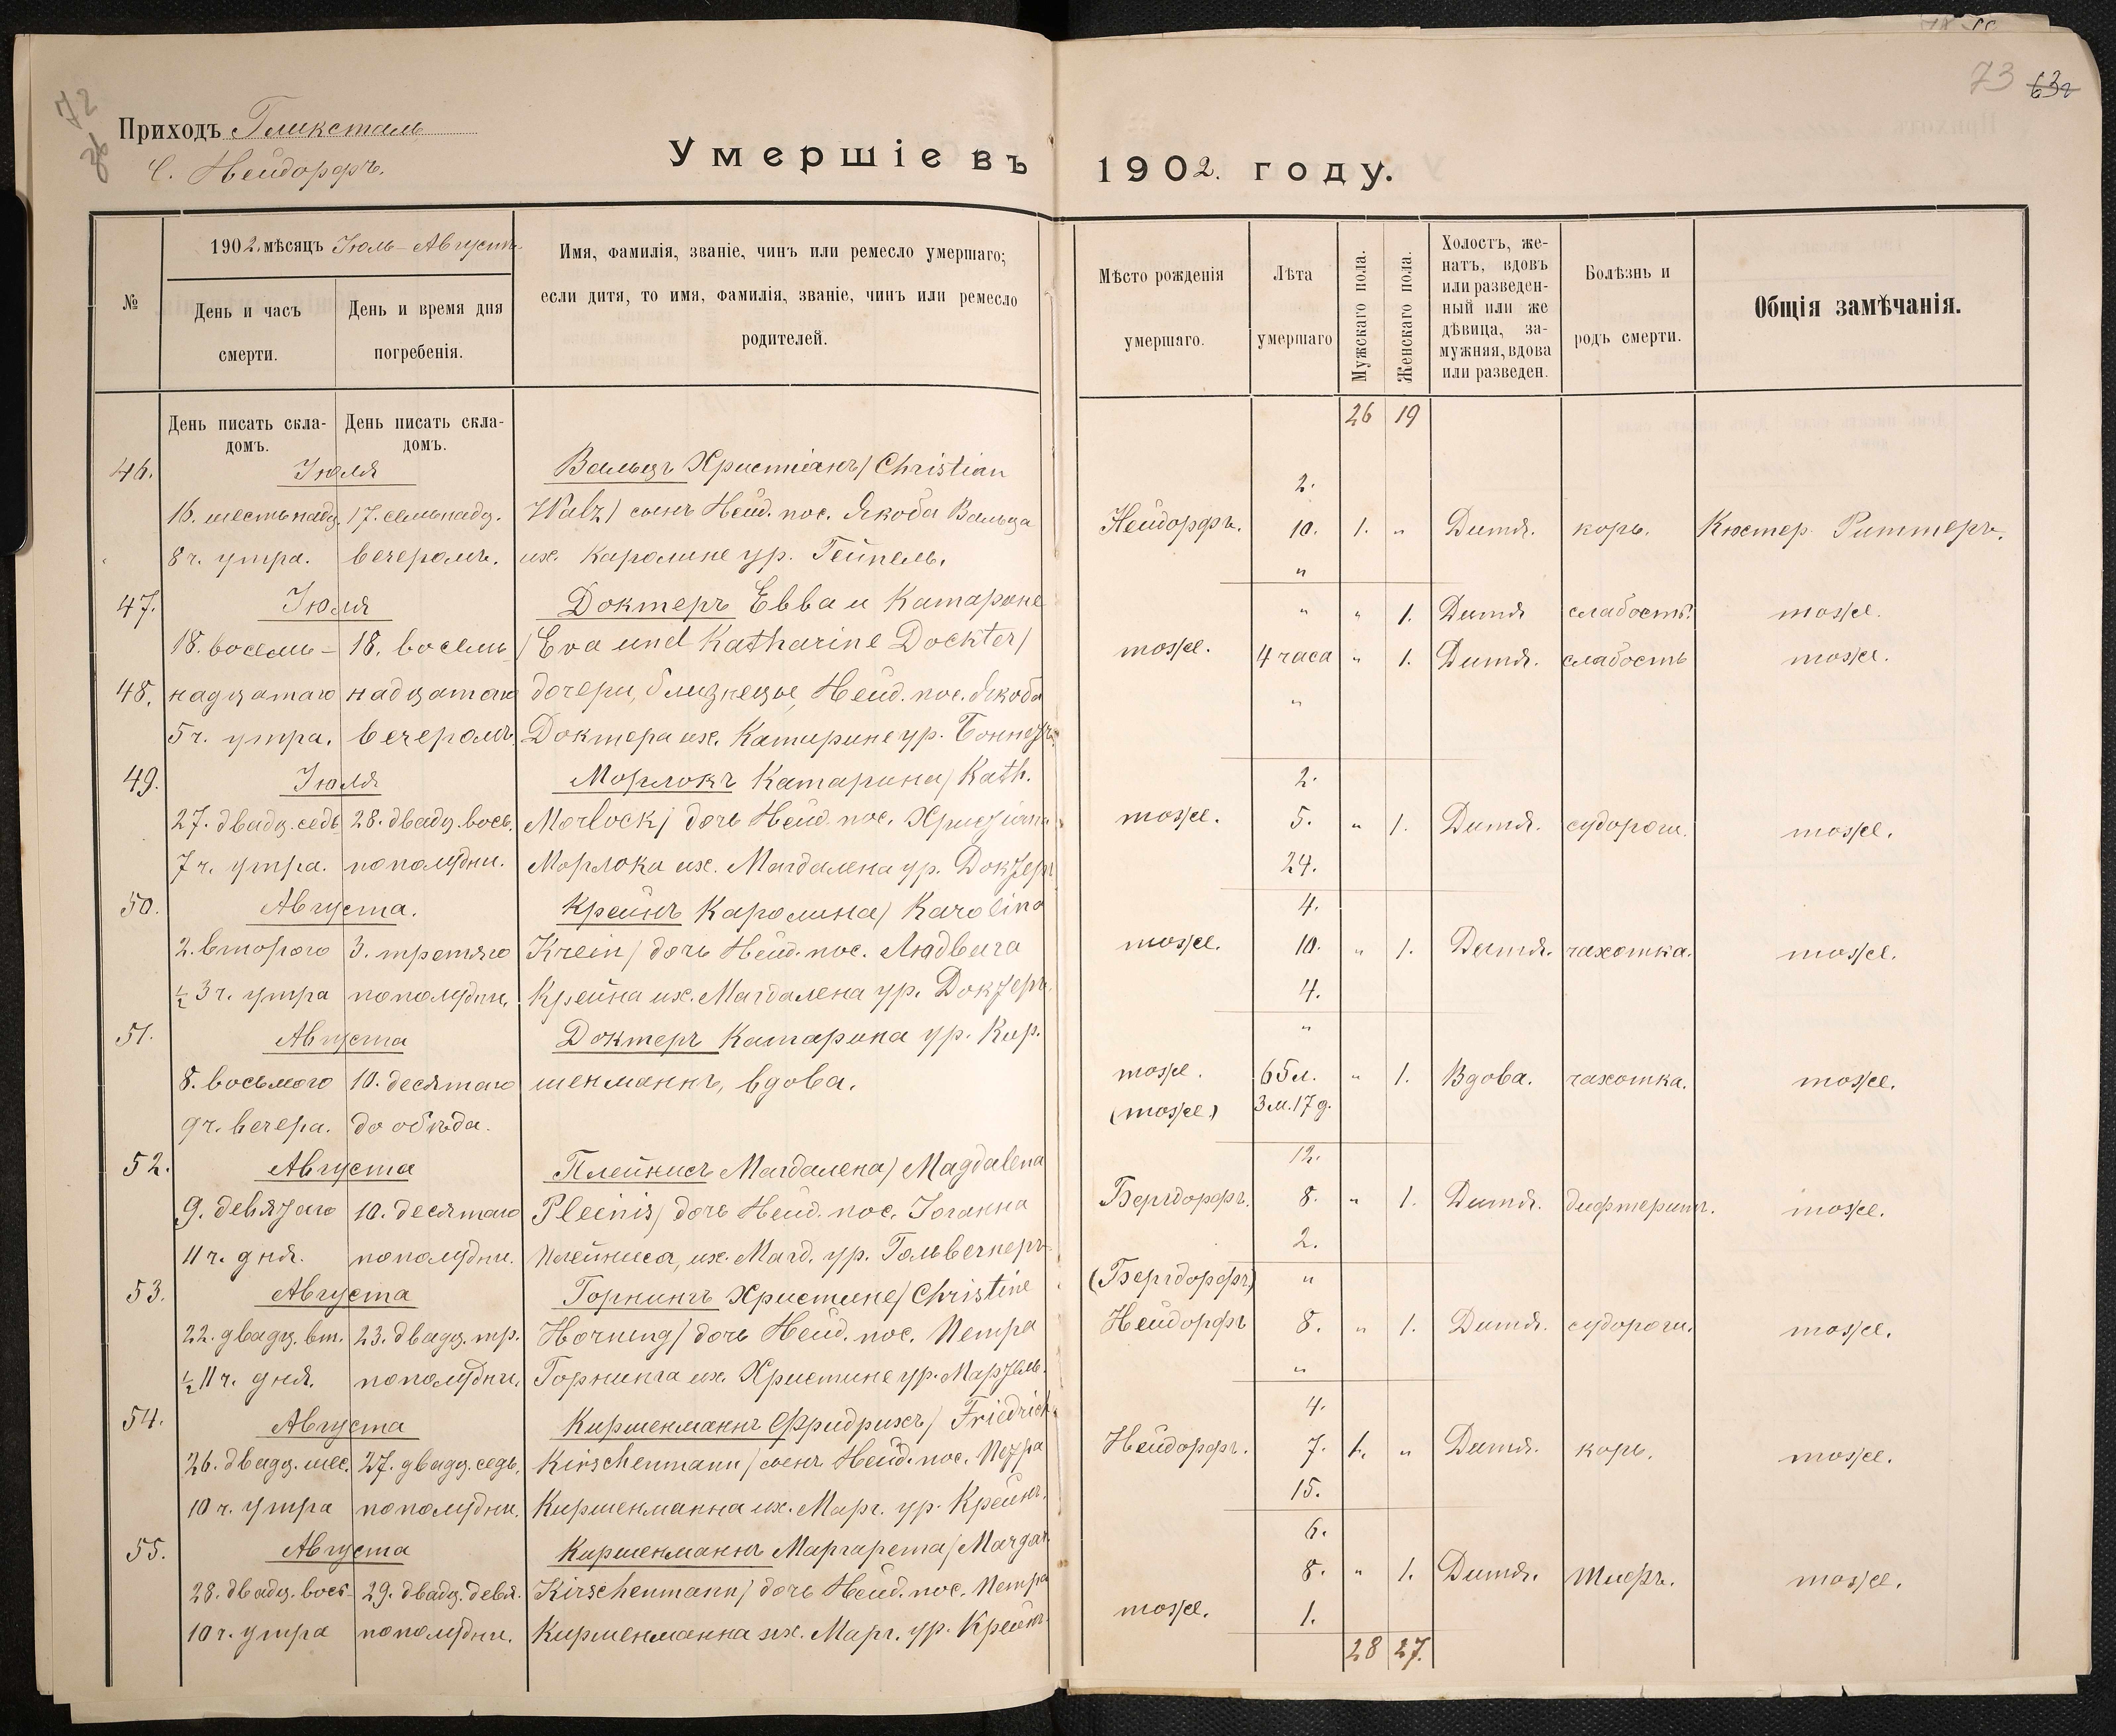 72
36
73 63г
Приходъ Гликсталь
С. Нейдорфъ.
Умершіе въ 1902. году.
№
1902. мѣсяцъ Іюль-Августъ
День и часъ смерти.
День и время дня погребенія.
Имя, фамилія, званіе, чинъ или ремесло умершаго;
если дитя, то имя, фамилія, званіе, чинъ или ремесло
родителей.
Мѣсто рожденія
умершаго.
Лѣта
умершаго
Мужскаго пола.
Женскаго пола.
Холостъ, же-
натъ, вдовъ
или разведен-
ный или же
дѣвица, за-
мужняя, вдова
или разведен.
Болѣзнь и
родъ смерти.
Общія замѣчанія.
День писать скла-
домъ.
День писать скла-
домъ.
26 19
46. Іюля Вальцъ Христіанъ/ Christian 2.
16. шестьнадц. 17. семьнадц. Walz/ сынъ Нейд. пос. Якоба Вальца Нейдорфъ. 10. 1. „ Дитя. корь. Кюстер Риттеръ.
8 ч. утра. вечеромъ. иж. Каролине ур. Гейпель. „
47. Іюля Доктеръ Евва и Катарине „ „ 1. Дитя слабость. тотже.
18. восемь- 18. восемь /Eva und Katharine Dockter/ тотже. 4 часа „ 1. Дитя. слабость тотже.
48. надцатаго надцатаго дочери, близнецы, Нейд. пос. Якоба „
5 ч. утра. вечеромъ. Доктера иж. Катирине ур. Боннетъ.
49. Іюля Морлокъ Катарина/ Kath. 2.
27. двадц. седь 28. двадц. вось. Morlock/ дочь Нейд. пос. Христіана тотже. 5. „ 1. Дитя. судороги. тотже.
7 ч. утра. пополудни. Морлока иж. Магдалена ур. Доктеръ 24.
50. Августа. Крейнъ Каролина/ Karolina 4.
2. второго 3. третяго Krein/ дочь Нейд. пос. Людвига тотже. 10. „ 1. Дитя. чахотка. тотже.
½ 3 ч. утра пополудни. Крейна иж. Магдалена ур. Доктеръ. 4.
51. Августа Доктеръ Катарина ур. Кир- „
8. восьмого 10. десятаго шенманнъ, вдова. тотже. 65 л. „ 1. Вдова. чахотка. тотже.
9 ч. вечера. до обѣда. (тотже) 3 м. 17 д.
52. Августа Плейнисъ Магдалена/ Magdalena 12.
9. девятаго 10. десятаго Pleinis/ дочь Нейд. пос. Іоганна Бергдорфъ. 8. „ 1. Дитя. дифтеритъ. тотже.
11 ч. дня. пополудни. Плейниса, иж. Магд. ур. Гольвегнеръ 2.
53. Августа Горнингъ Христине/ Christine (Бергдорфъ) „
22. двадц. вт. 23. двадц. тр. Hornung/ дочь Нейд. пос. Петра Нейдорфъ 8. „ 1. Дитя. судороги. тотже.
½ 11 ч. дня. пополудни. Горнинга иж. Христине ур. Мартель. „
54. Августа Киршенманнъ Фридрихъ/ Friedrich 4.
26. двадц. шес. 27. двадц. седь. Kirschenmann/ сынъ Нейд. пос. Петра Нейдорфъ. 7. 1. „ Дитя. корь. тотже.
10 ч. утра пополудни. Киршенманна иж. Марг. ур. Крейнъ. 15.
55. Августа Киршенманнъ Маргарета/ Margar. 6.
28. двадц. вось- 29. двадц. девя. Kirschenmann/ дочь Нейд. пос. Петра 8. „ 1. Дитя. Тифъ. тотже.
10 ч. утра пополудни. Киршенманна иж. Марг. ур. Крейнъ. тотже. 1.
28 27.